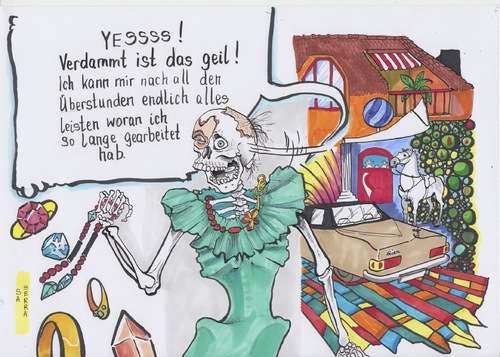 YESSSS !
Verdammt ist das geil !
Ich kann mir nach all den
Überstunden endlich alles
leisten woran ich
so lange gearbeitet
hab.
SA
SERRA